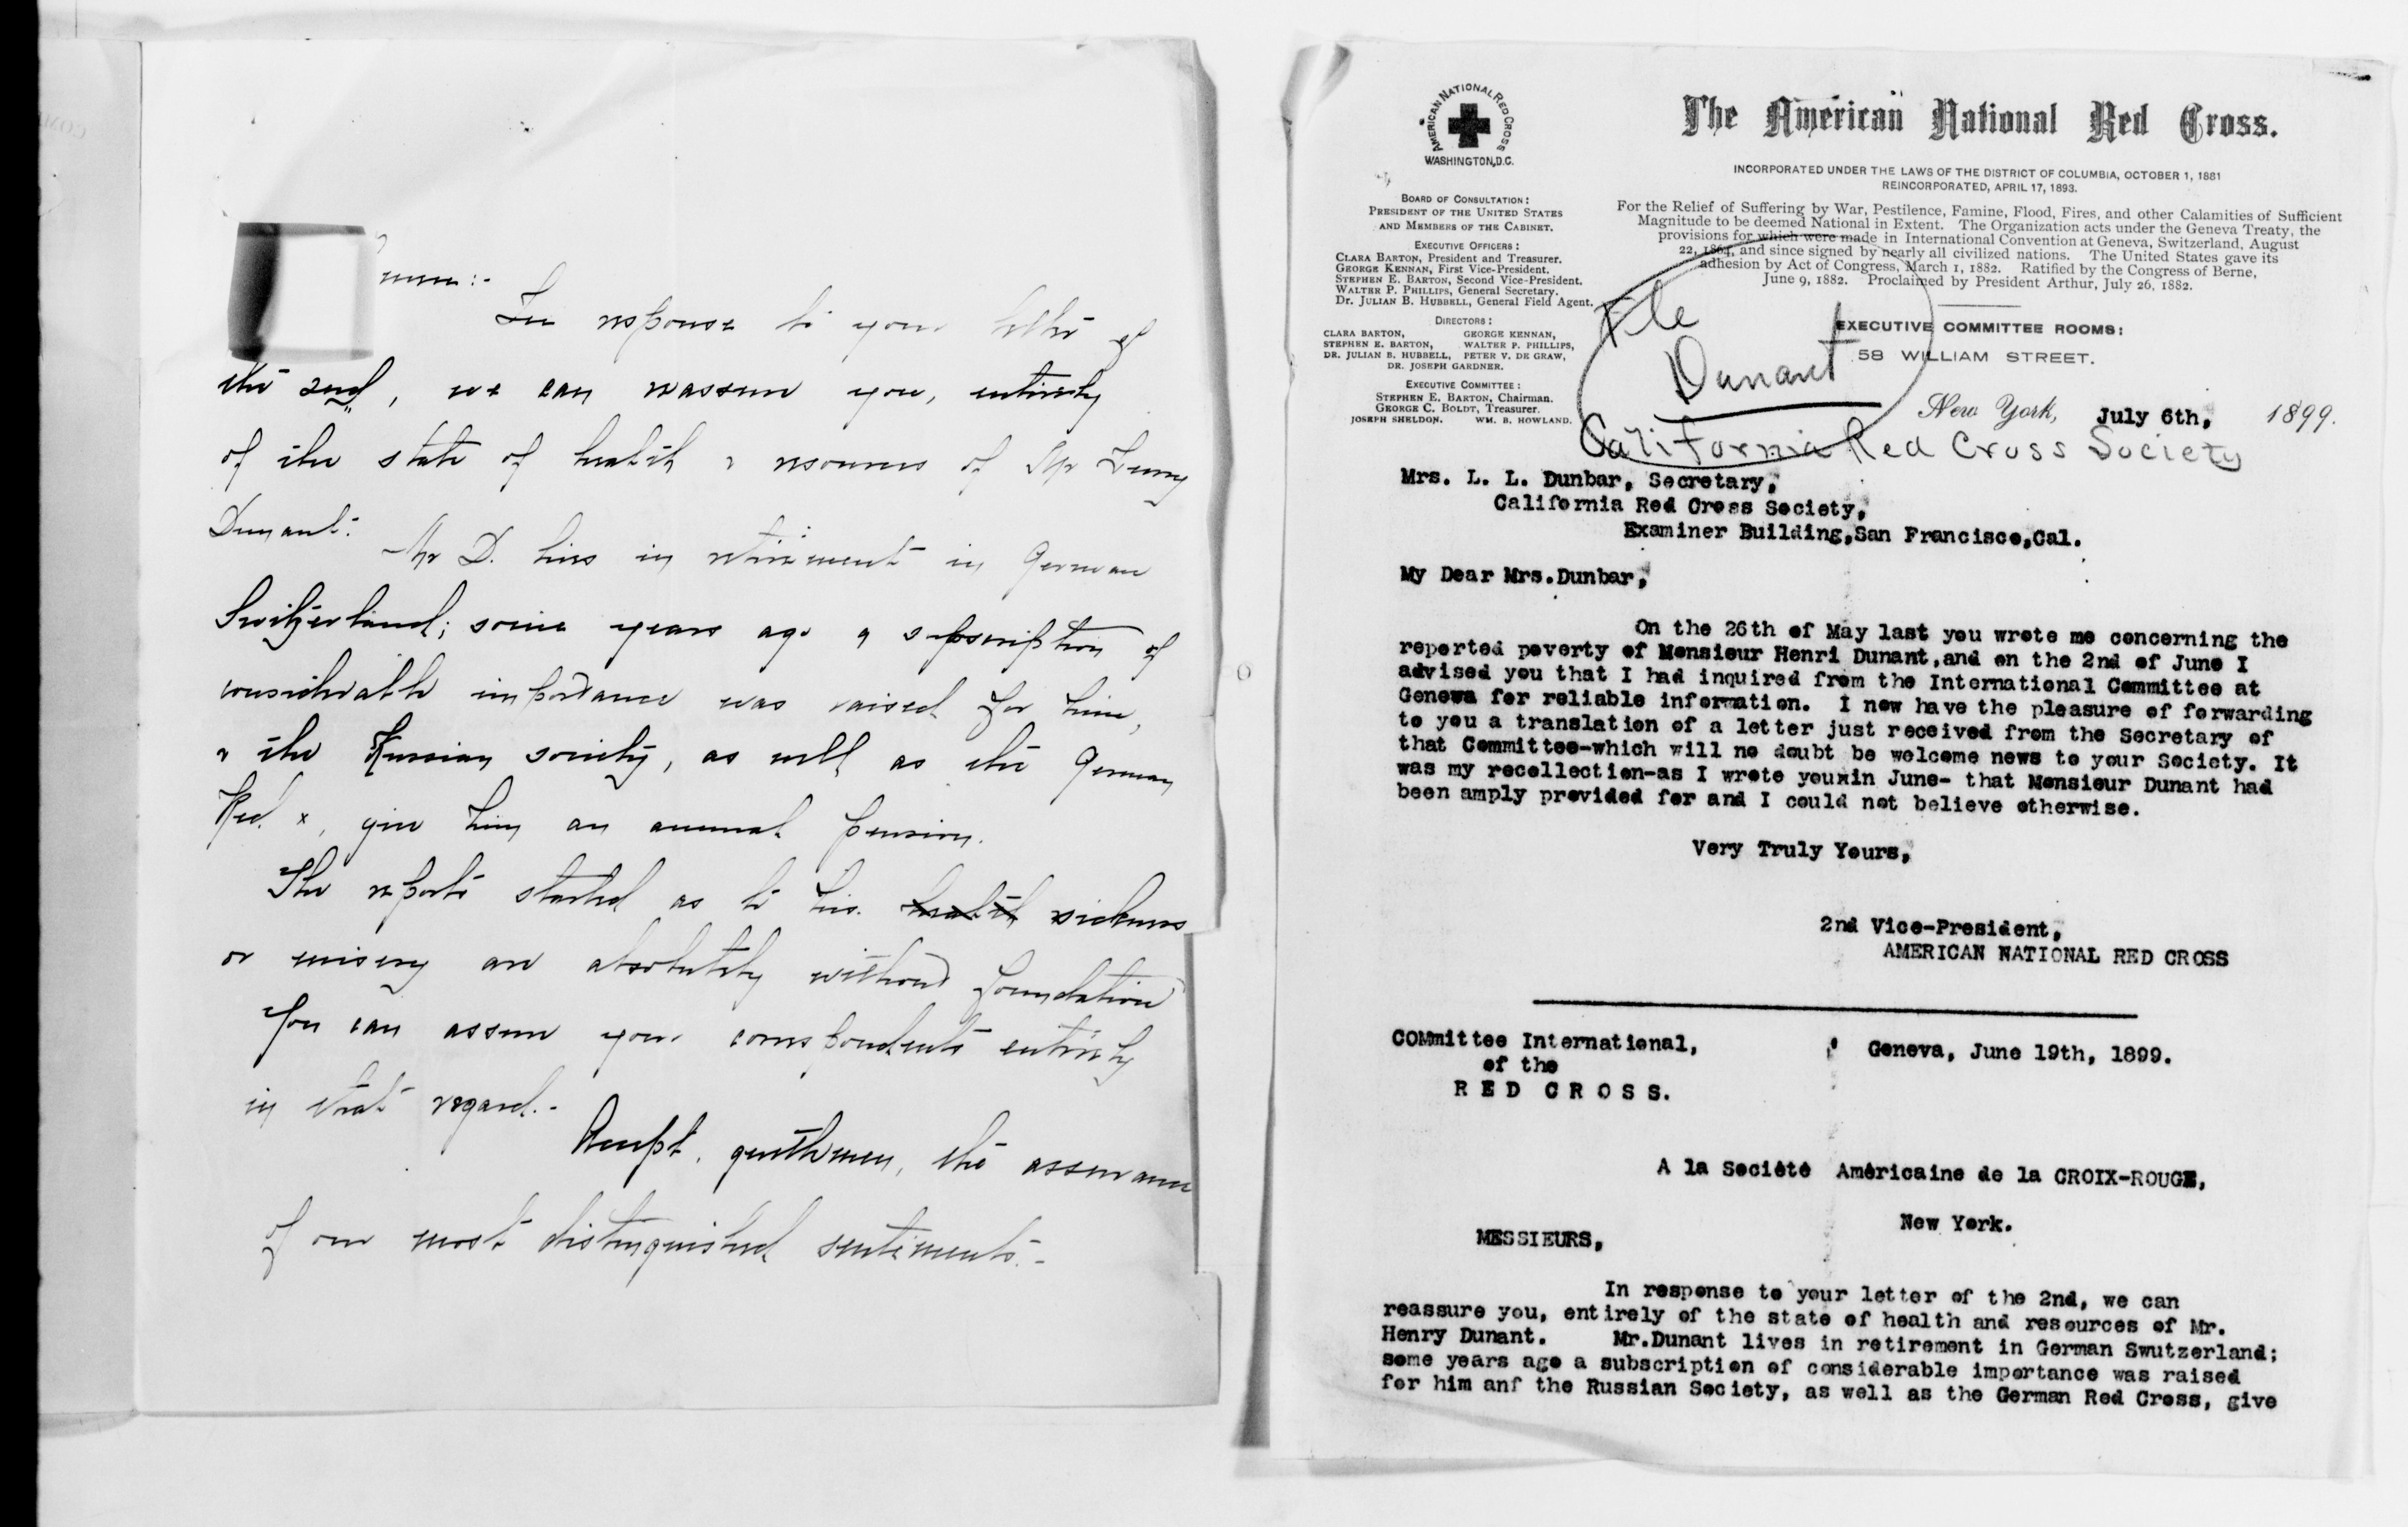 In response to your letter of
the 2nd, we can reassure you, entirely
of the state of health & resources of Mr Henry
Dunant. Mr D. lives in retirement in German
Switzerland; some years ago a subscription of
considerable importance was raised for him,
& the Russian society, as well as the German
Red x, give him an annual pension.
The reports started as to his health sickness
or misery are absolutely without foundation
You can assure your correspondents entirely
in that regard.-
Accept, gentlemen, the assurance
of our most distinguished sentiments.-
AMERICAN NATIONAL RED CROSS
WASHINGTON, D.C.
The American National Red Cross.
INCORPORATED UNDER THE LAWS OF THE DISTRICT OF COLUMBIA, OCTOBER 1, 1881
REINCORPORATED, APRIL 17, 1893.
For the Relief of Suffering by War, Pestilence, Famine, Flood, Fires, and other Calamities of Sufficient
Magnitude to be deemed National in Extent. The Organization acts under the Geneva Treaty, the
provisions for which were made in International Convention at Geneva, Switzerland, August
22, 1864, and since signed by nearly all civilized nations. The United States gave its
adhesion by Act of Congress, March 1, 1882. Ratified by the Congress of Berne,
June 9, 1882. Proclaimed by President Arthur, July 26, 1882.
BOARD OF CONSULTATION:
PRESIDENT OF THE UNITED STATES
AND MEMBERS OF THE CABINET.
EXECUTIVE OFFICERS:
CLARA BARTON, President and Treasurer.
GEORGE KENNAN, First Vice-President.
STEPHEN E. BARTON, Second Vice-President.
WALTER P. PHILLIPS, General Secretary.
Dr. JULIAN B. HUBBELL, General Field Agent.
DIRECTORS:
CLARA BARTON, GEORGE KENNAN,
STEPHEN E. BARTON, WALTER P. PHILLIPS,
DR. JULIAN B. HUBBELL, PETER V. DE GRAW,
DR. JOSEPH GARDNER.
EXECUTIVE COMMITTEE:
STEPHEN E. BARTON, Chairman.
GEORGE C. BOLDT, Treasurer.
JOSEPH SHELDON. WM. B. HOWLAND.
File
Dunant
EXECUTIVE COMMITTEE ROOMS:
58 WILLIAM STREET.
New York, July 6th, 1899.
California Red Cross Society
Mrs. L. L. Dunbar, Secretary,
California Red Cross Society,
Examiner Building,San Francisco,Cal.
My Dear Mrs.Dunbar,
On the 26th of May last you wrote me concerning the
reported poverty of Monsieur Henri Dunant,and on the 2nd of June I
advised you that I had inquired from the International Committee at
Geneva for reliable information. I now have the pleasure of forwarding
to you a translation of a letter just received from the Secretary of
that Committee-which will no doubt be welcome news to your Society. It
was my recollection-as I wrote youxin June- that Monsieur Dunant had
been amply provided for and I could not believe otherwise.
Very Truly Yours,
2nd Vice-President,
AMERICAN NATIONAL RED CROSS
COMmittee International,
of the
RED CROSS.
Geneva, June 19th, 1899.
A la Société Américaine de la CROIX-ROUGE,
New York.
MESSIEURS,
In response to your letter of the 2nd, we can
reassure you, entirely of the state of health and resources of Mr.
Henry Dunant. Mr.Dunant lives in retirement in German Swutzerland;
some years ago a subscription of considerable importance was raised
for him anf the Russian Society, as well as the German Red Cross, give